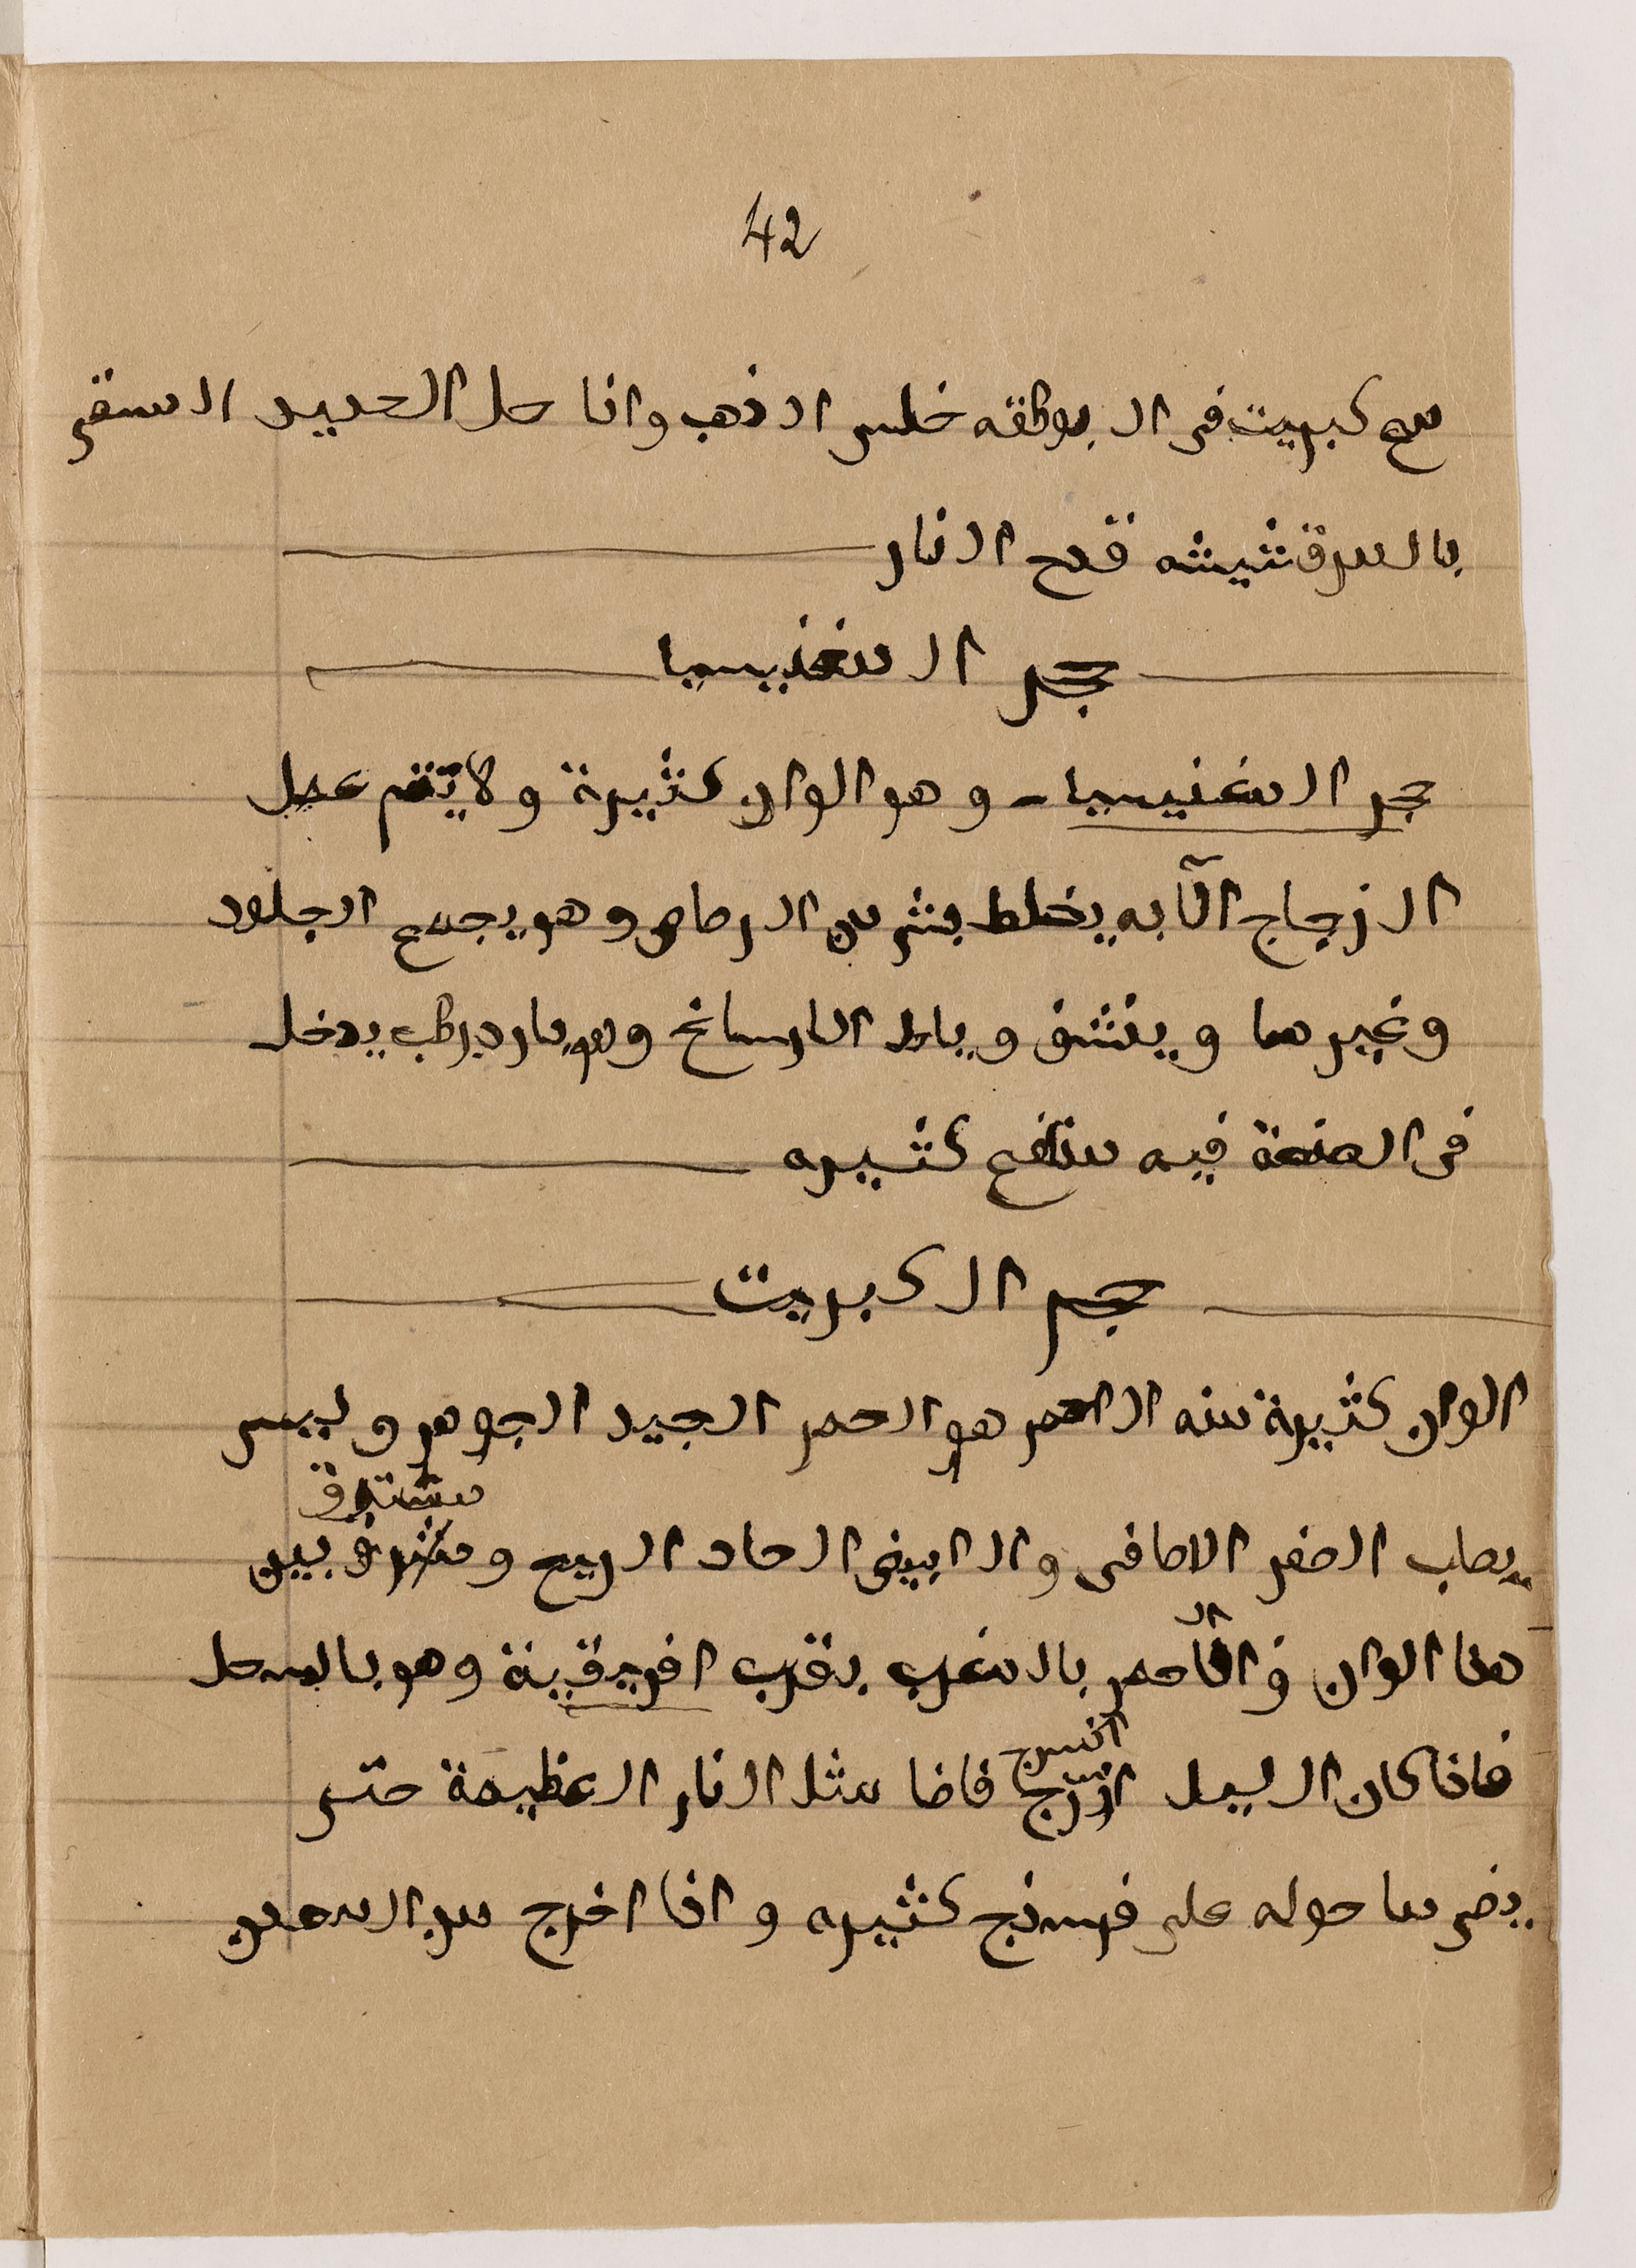 42
مع كبريت فى البوطقه خلس الذهب واذا حل الحديد المسقى
بالمرقشيشه قدح النار
حجر المغنيسيا
حجر المغنيسيا - وهو الوان كثيرة ولا يتم عمل
الزجاج الآ به يخلط بشى من الرصاص وهو يجمع الجلود
وغيرها وينشف وياكل الاوساخ وهو بارد رطب يدخل
فى الصنعة فيه منافع كثيره
حجر الكبريت
الوان كثيرة منه الاحمر هو الحمر الجيد الجوهر وليس
مشتدق
بصاب الصفر الاصافى والابيض الحاد الريح و بين
هذا الوان و الاحمر بالمغرب بقرب افريقية وهو بالسحل
انسرج
فاذا كان اليل فاضا مثل النار العظيمة حتى
يضى ما حوله على فرسنج كثيره واذا اخرج من المعدن